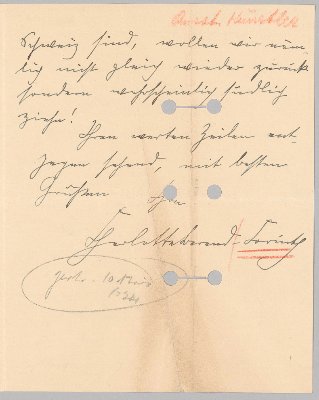 Ausst. Künstler
Schweiz sind, wollen wir näm-
lich nicht gleich wieder zurück
sondern wahrscheinlich südlich
ziehn!
Ihren werten Zeilen ent-
gegen sehend, mit besten
Grüßen Ihre
Charlotte Berend-Corinth
10 März
1924